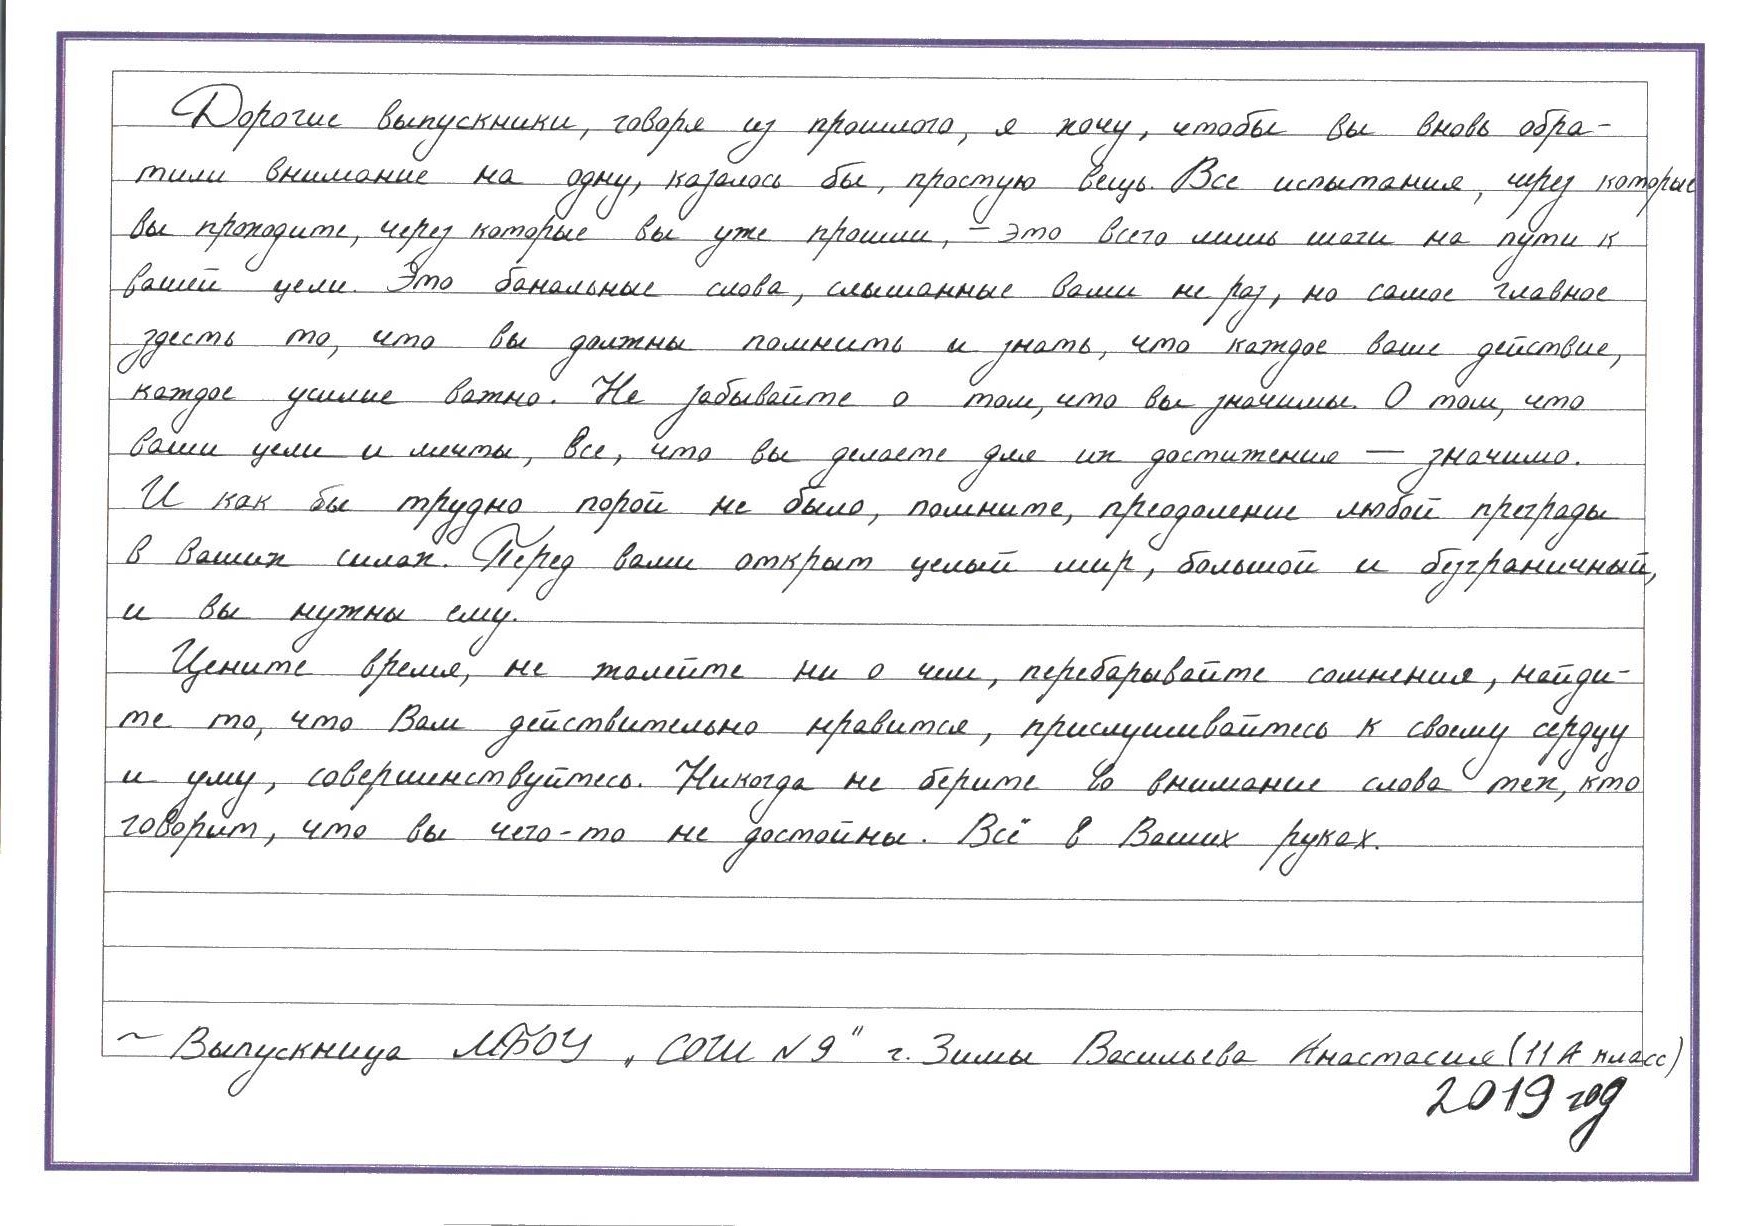 Дорогие выпускники, говоря из прошлого, я хочу, чтобы вы вновь обра-
тили внимание на одну, казалось бы, простую вещь. Все испытания, через которые
вы проходите, через которые вы уже прошли, – это всего лишь шаги на пути к
вашей цели. Это банальные слова, слышанные вами не раз, но самое главное
здесть то, что вы должны помнить и знать, что каждое ваше действие,
каждое усилие важно. Не забывайте о том, что вы значимы. О том, что
ваши цели и мечты, все, что вы делаете для их достижения — значимо.
И как бы трудно порой не было, помните, преодоление любой преграды
в ваших силах. Перед вами открыт целый мир, большой и безграничный,
и вы нужны ему.
Цените время, не жалейте ни о чем, перебарывайте сомнения, найди-
те то, что Вам действительно нравится, прислушивайтесь к своему сердцу
и уму, совершенствуйтесь. Никогда не берите во внимание слова тех, кто
говорит, что вы чего-то не достойны. Всё в Ваших руках.
~ Выпускница МБОУ „СОШ №9" г. Зимы Васильева Анастасия (11 А класс)
2019 год